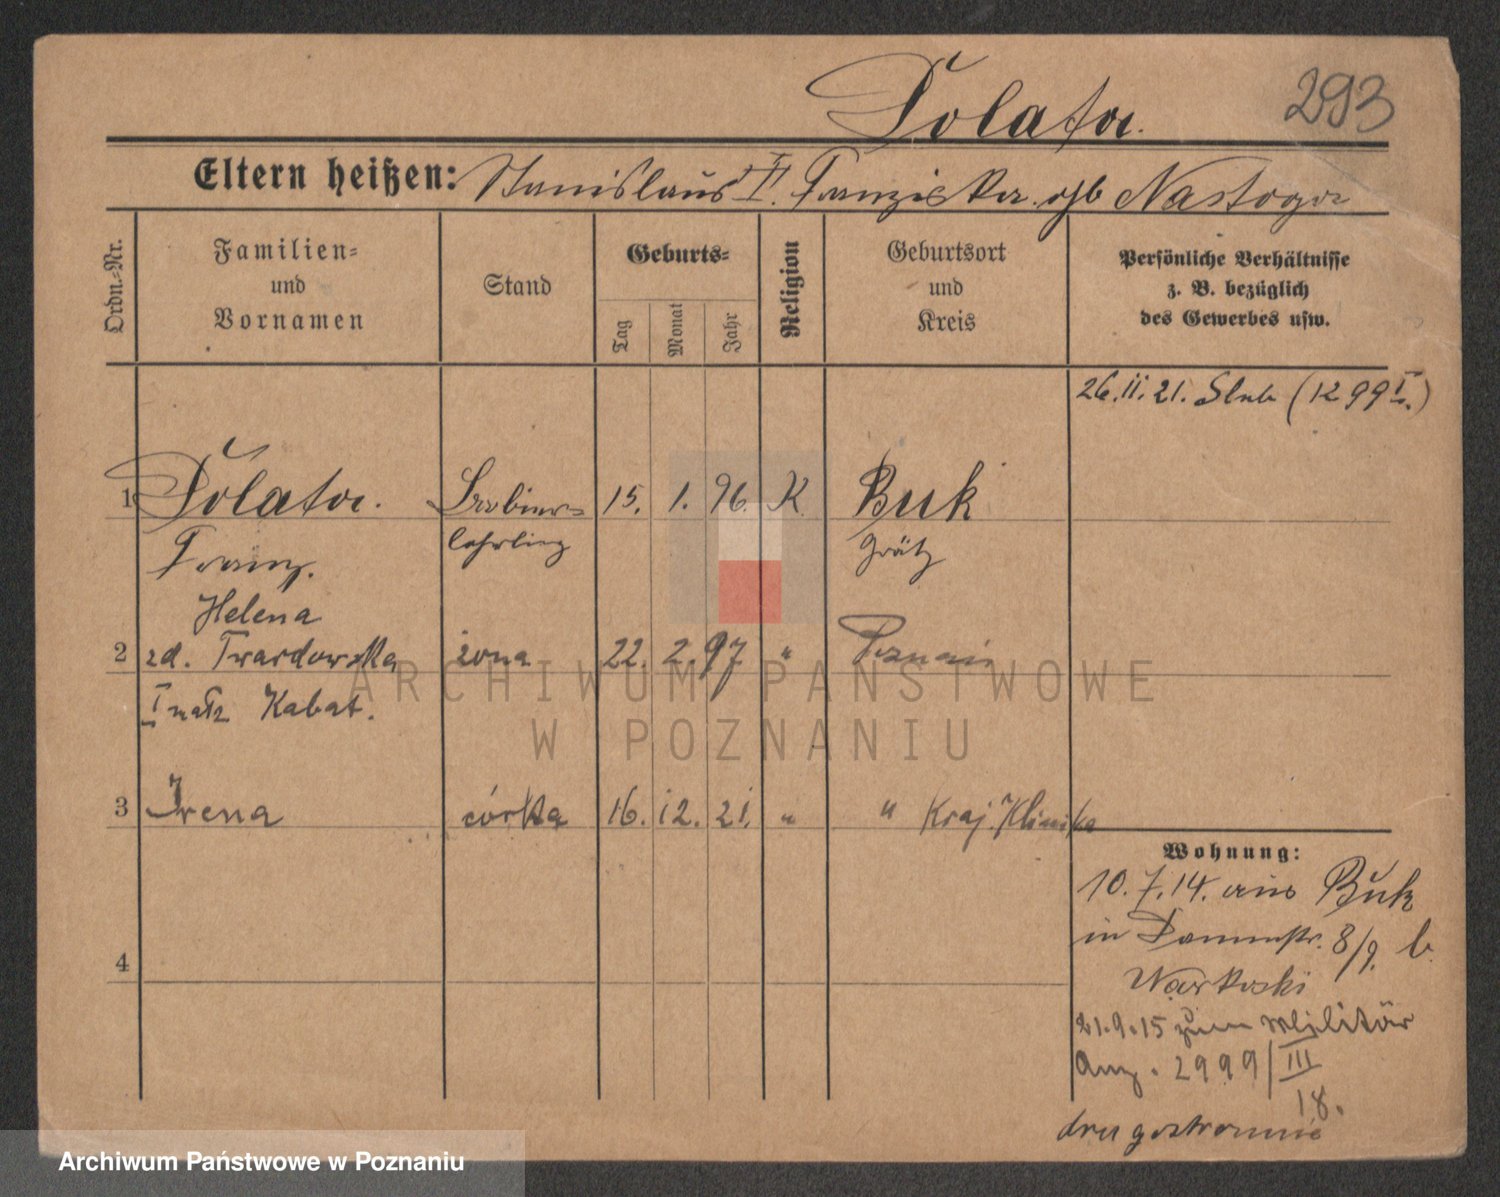 Dolata.
293
Eltern heißen: Stanislaus II. Franziska geb Nastoga
Ordn.-Nr.
Familien-
und
Vornamen
Stand
Geburts-
Tag
Monat
Jahr
Religion
Geburtsort
und
Kreis
Persönliche Verhältnisse
z. B. bezüglich
des Gewerbes usw.
26.11.21. Ślub (1299 I.)
1 Dolata. 15. 1. 96. K. Buk
Franz. lehrling Grätz
Helena
2 zd. Twardowska żona 22. 2. 97 " Poznań
Kabat.
3 Irena córka 16. 12. 21. " " Kraj. Klinika
4
Wohnung:
10.7.14. aus Buk
in Dammstr. 8/9. b.
21.9.15 zum Militär
Anz. 2999/III
18.
drugostronnie
ARCHIWUM PAŃSTWOWE
W POZNANIU
Archiwum Państwowe w Poznaniu